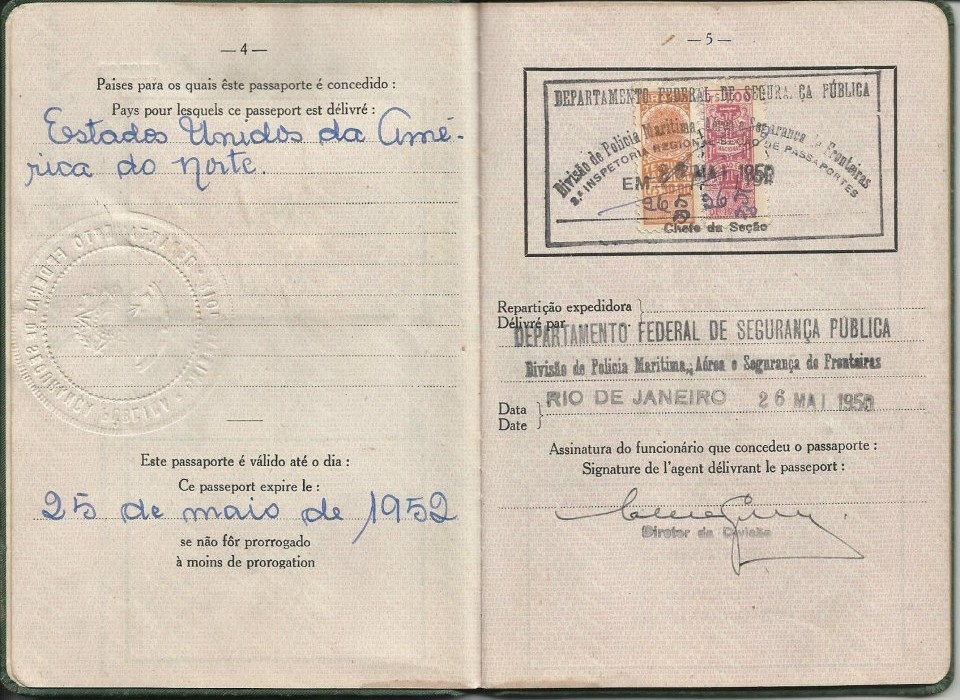 — 4 —
Países para os quais êste passaporte é concedido :
Pays pour lesquels ce passeport est délivré :
Estados Unidos da Amé-
rica do Norte.
Este passaporte é válido até o dia :
Ce passeport expire le :
25 de maio de 1952
se não fôr prorrogado
à moins de prorogation
— 5 —
DEPARTAMENTO FEDERAL DE SEGURANÇA PÚBLICA
Divisão de Polícia Marítima, Aérea e Segurança de Fronteiras
2.ª INSPETORIA REGIONAL-SEÇÃO DE PASSAPORTES
EM 26 MAI 1950
Chefe da Seção
Repartição expedidora
Délivré par
DEPARTAMENTO FEDERAL DE SEGURANÇA PÚBLICA
Divisão de Polícia Marítima, Aérea e Segurança de Fronteiras
Data
Date
RIO DE JANEIRO 26 MAI 1950
Assinatura do funcionário que concedeu o passaporte :
Signature de l'agent délivrant le passeport :
Diretor da Divisão